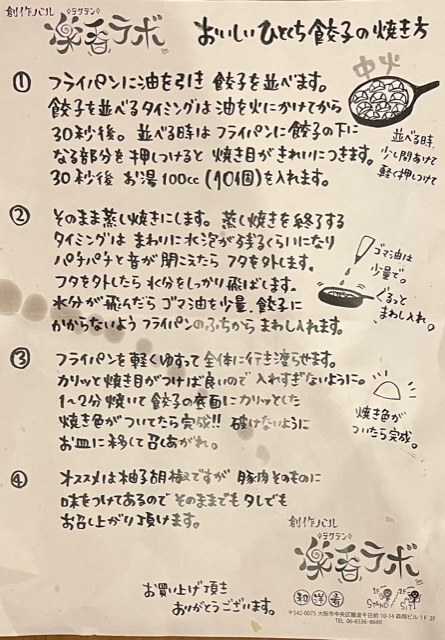 創作バル
◇ラクデン◇
楽呑ラボ
おいしいひとくち餃子の焼き方
① フライパンに油を引き 餃子を並べます。
餃子を並べるタイミングは油を火にかけてから
30秒後。並べる時はフライパンに餃子の下に
なる部分を押しつけると 焼き目がきれいにつきます。
30秒後 お湯100cc(10個)を入れます。
中火
並べる時、
少し間あけて
軽く押しつけて
② そのまま蒸し焼きにします。蒸し焼きを終了する
タイミングは まわりに水泡が残るくらいになり
パチパチと音が聞こえたら フタを外します。
フタを外したら水分をしっかり飛ばします。
水分が飛んだら ゴマ油を少量、餃子に
かからないよう フライパンのふちから まわし入れます。
ゴマ油は
少量で。
ぐるっと
まわし入れ。
③ フライパンを軽くゆすって全体に行き渡らせます。
カリッと焼き目がつけば良いので入れすぎないように。
1〜2分焼いて餃子の底面にカリッとした
焼き色がついてたら完成!! 破けないように
お皿に移して召しあがれ。
焼き色が
ついたら完成。
④ オススメは柚子胡椒ですが 豚肉そのものに
味をつけてあるので そのままでも タレでも
お召し上がり頂けます。
お買い上げ頂き
ありがとうございます。
創作バル
◇ラクデン◇
楽呑ラボ
和洋肴
STAND
〒542-0075 大阪市中央区難波千日前10-14 森岡ビル1F 2F
TEL 06-6536-8660